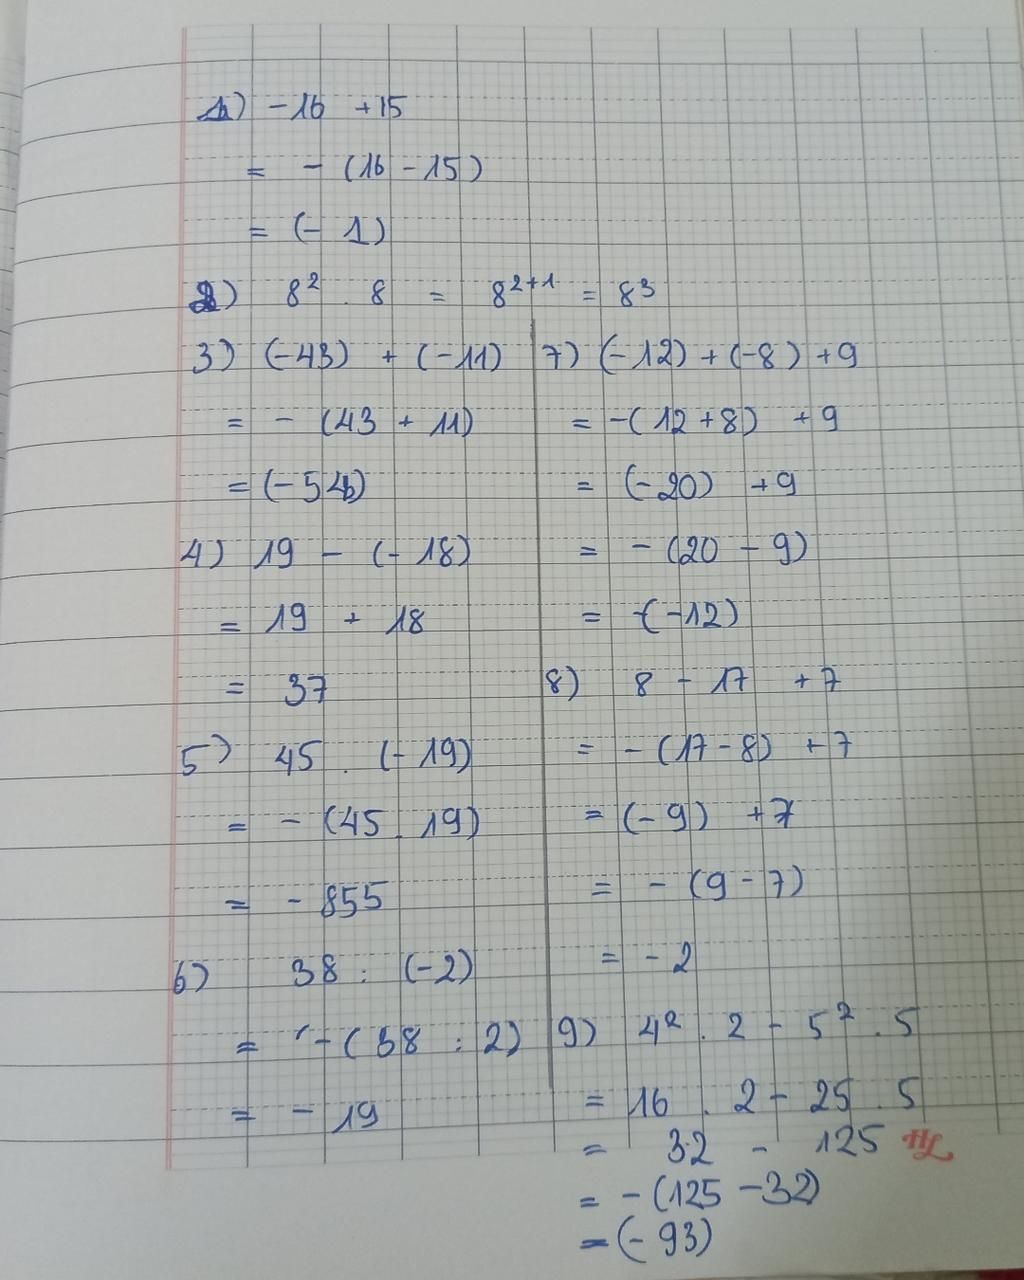 1) -16 +15
= - (16 - 15)
= (- 1)
2) 8² . 8 = 8²⁺¹ = 8³
3) (-43) + (-11)
= - (43 + 11)
= (-54)
4) 19 - (- 18)
= 19 + 18
= 37
5) 45 . (- 19)
= - (45 . 19)
= - 855
6) 38 : (-2)
= - (38 : 2)
= - 19
7) (-12) + (-8) + 9
= -(12 + 8) + 9
= (-20) + 9
= - (20 - 9)
= (-12)
8) 8 - 17 + 7
= - (17 - 8) + 7
= (-9) + 7
= - (9 - 7)
= - 2
9) 4² . 2 - 5² . 5
= 16 . 2 - 25 . 5
= 32 - 125
= - (125 - 32)
= (- 93)